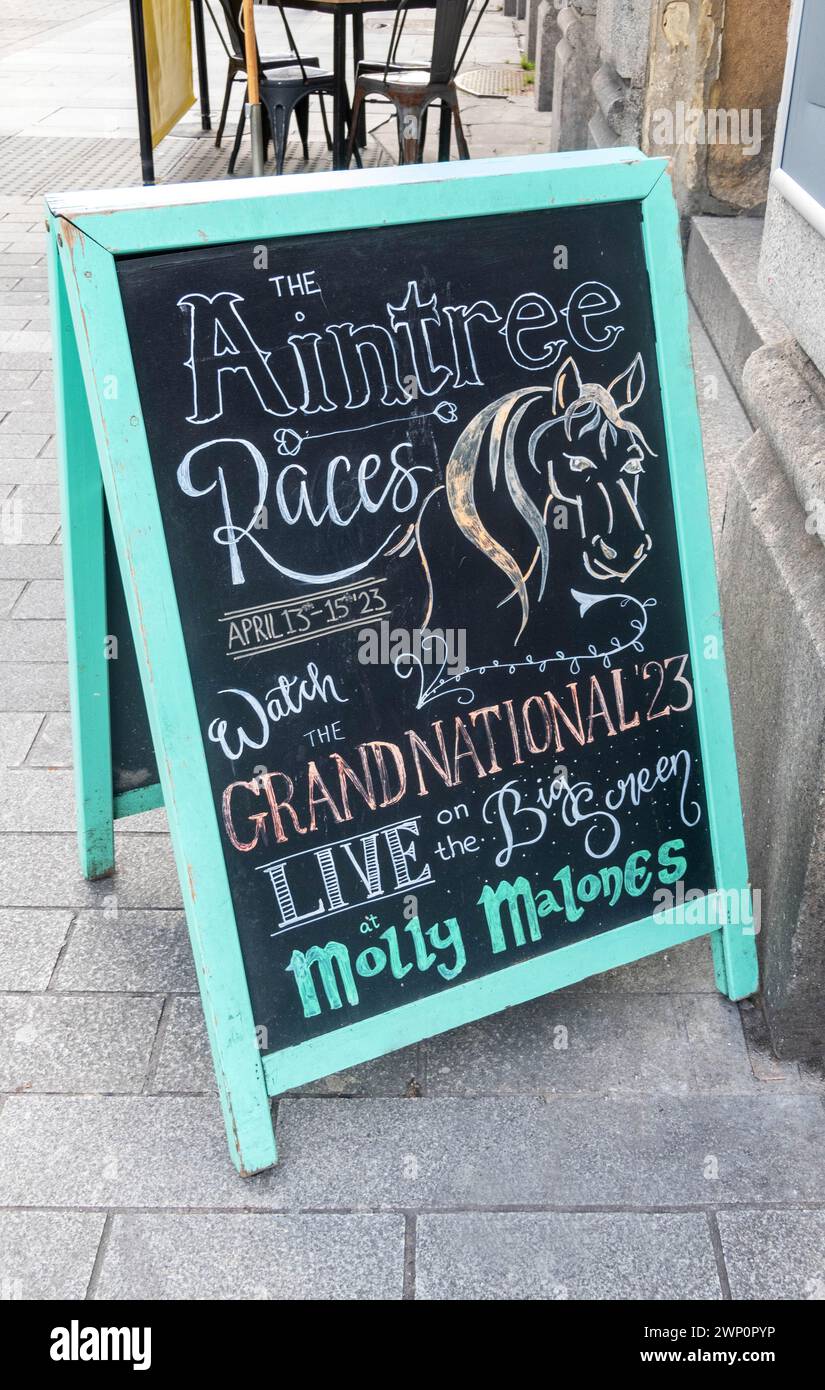 THE
Aintree
Races
APRIL 13-15 '23
Watch
THE
GRAND NATIONAL '23
LIVE on the Big Screen
at
Molly MalonES
alamy
Image ID: 2WP0PYP
www.alamy.com